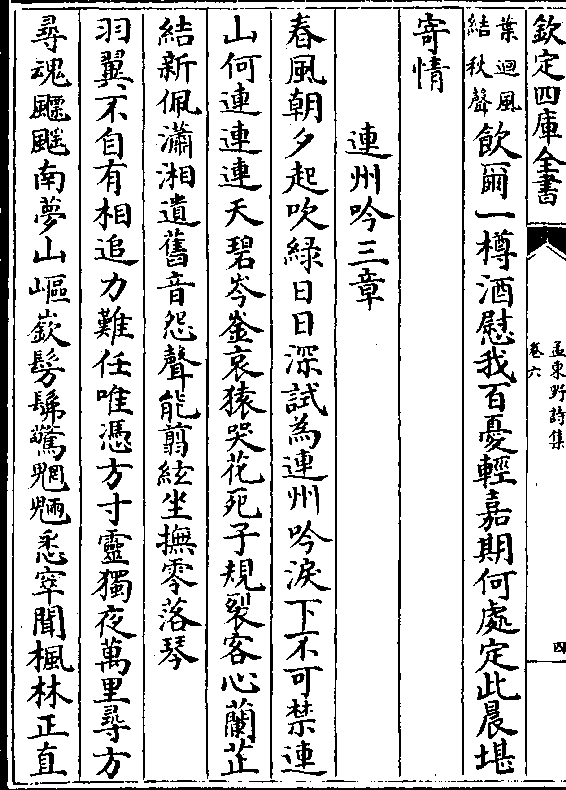 欽定四庫全書
孟東野詩集
卷六
四
葉迴風
結秋聲飲爾一樽酒慰我百憂輕嘉期何處定此晨堪
寄情
連州吟三章
春風朝夕起吹緑日日深試為連州吟淚下不可禁連
山何連連連天碧岑崟哀猿哭花死子規裂客心蘭芷
結新佩瀟湘遺舊音怨聲能翦絃坐撫零落琴
羽翼不自有相追力難任唯憑方寸靈獨夜萬里尋方
尋魂飄颻南夢山嶇嶔髣髴驚魍魎悉窣聞楓林正直